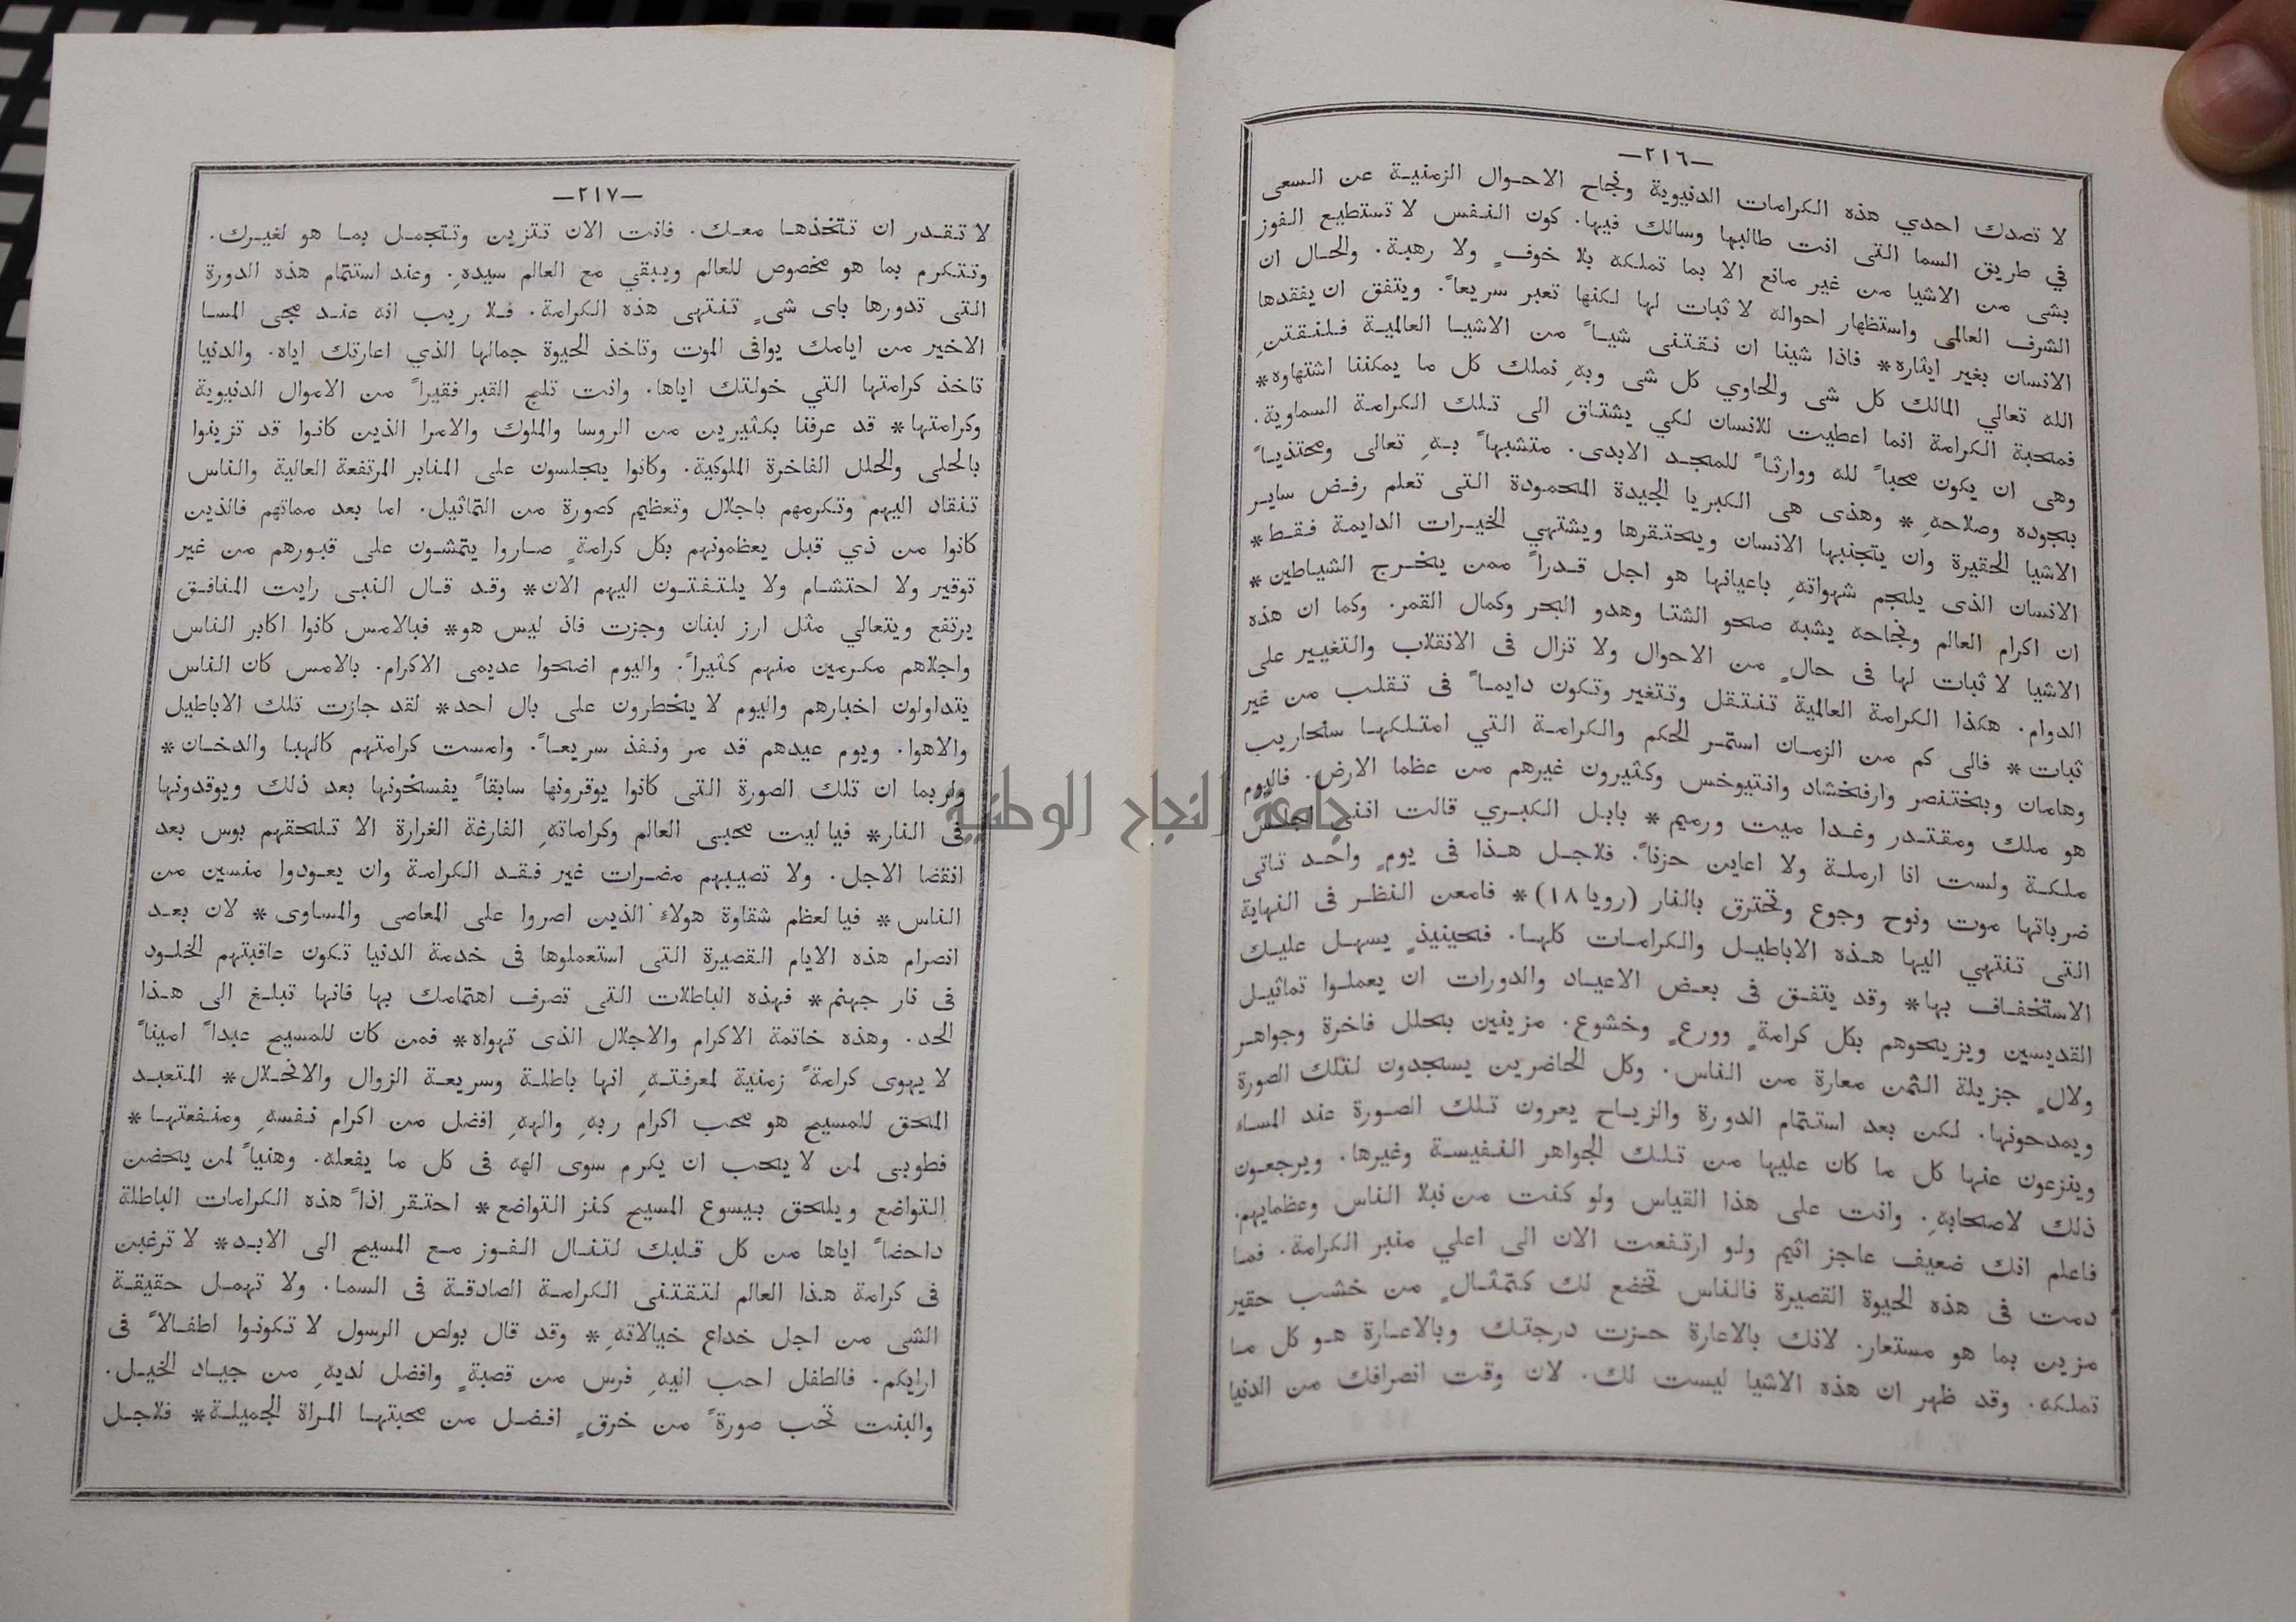 —٢١٦—
لا تصدك احدي هذه الكرامات الدنيوية ونجاح الاحوال الزمنية عن السعى
في طريق السما التى انت طالبها وسالك فيها. كون النفس لا تستطيع الفوز
بشى من الاشيا من غير مانع الا بما تملكه بلا خوفٍ ولا رهبة. والحال ان
الشرف العالمى واستظهار احواله لا ثبات لها لكنها تعبر سريعاً. ويتفق ان يفقدها
الانسان بغير ايثاره* فاذا شينا ان نقتنى شياً من الاشيا العالمية فلنقتنِ
الله تعالي المالك كل شى والحاوي كل شى وبهِ نملك كل ما يمكننا اشتهاوه*
فمحبة الكرامة انما اعطيت للانسان لكي يشتاق الى تلك الكرامة السماوية.
وهى ان يكون محباً لله ووارثاً للمجد الابدى. متشبهاً بهِ تعالى ومحتذياً
بجوده وصلاحهِ* وهذى هى الكبريا الجيدة المحمودة التى تعلم رفض ساير
الاشيا الحقيرة وان يتجنبها الانسان ويحتقرها ويشتهي الخيرات الدايمة فقط*
الانسان الذى يلجم شهواتهِ باعيانها هو اجل قدراً ممن يخرج الشياطين*
ان اكرام العالم ونجاحه يشبه صحو الشتا وهدو البحر وكمال القمر. وكما ان هذه
الاشيا لا ثبات لها فى حالٍ من الاحوال ولا تزال فى الانقلاب والتغيير على
الدوام. هكذا الكرامة العالمية تنتقل وتتغير وتكون دايماً فى تقلب من غير
ثبات* فالى كم من الزمان استمر الحكم والكرامة التي امتلكها سنحاريب
وهامان وبختنصر وارفخشاد وانتيوخس وكثيرون غيرهم من عظما الارض. فاليوم
هو ملك ومقتدر وغدا ميت ورميم* بابل الكبري قالت اننى اجلس
ملكة ولست انا ارملة ولا اعاين حزناً. فلاجل هذا فى يومٍ واحد تاتى
ضرباتها موت ونوح وجوع وتحترق بالنار (رويا ١٨)* فامعن النظر فى النهاية
التى تنتهي اليها هذه الاباطيل والكرامات كلها. فحينيذٍ يسهل عليك
الاستخفاف بها* وقد يتفق فى بعض الاعياد والدورات ان يعملوا تماثيل
القديسين ويزيحوهم بكل كرامةٍ وورعٍ وخشوع. مزينين بحلل فاخرة وجواهر
ولالٍ جزيلة الثمن معارة من الناس. وكل الحاضرين يسجدون لتلك الصورة
ويمدحونها. لكن بعد استتمام الدورة والزياح يعرون تلك الصورة عند المساء
وينزعون عنها كل ما كان عليها من تلك الجواهر النفيسة وغيرها. ويرجعون
ذلك لاصحابهِ. وانت على هذا القياس ولو كنت من نبلا الناس وعظمايهم.
فاعلم انك ضعيف عاجز اثيم ولو ارتفعت الان الى اعلي منبر الكرامة. فما
دمت فى هذه الحيوة القصيرة فالناس تخضع لك كتمثالٍ من خشب حقير
مزين بما هو مستعار. لانك بالاعارة حزت درجتك وبالاعارة هو كل ما
تملكه. وقد ظهر ان هذه الاشيا ليست لك. لان وقت انصرافك من الدنيا
—٢١٧—
لا تقدر ان تتخذها معك. فانت الان تتزين وتتجمل بما هو لغيرك.
وتتكرم بما هو مخصوص للعالم ويبقي مع العالم سيدهِ. وعند استتمام هذه الدورة
التى تدورها باى شىٍ تنتهى هذه الكرامة. فلا ريب انه عند مجى المسا
الاخير من ايامك يوافى الموت وتاخذ الحيوة جمالها الذي اعارتك اياه. والدنيا
تاخذ كرامتها التي خولتك اياها. وانت تلج القبر فقيراً من الاموال الدنيوية
وكرامتها* قد عرفنا بكثيرين من الروسا والملوك والامرا الذين كانوا قد تزينوا
بالحلى والحلل الفاخرة الملوكية. وكانوا يجلسون على المنابر المرتفعة العالية والناس
تنقاد اليهم وتكرمهم باجلال وتعظيم كصورة من التماثيل. اما بعد مماتهم فالذين
كانوا من ذي قبل يعظمونهم بكل كرامةٍ صاروا يتمشون على قبورهم من غير
توقير ولا احتشام ولا يلتفتون اليهم الان* وقد قال النبى رايت المنافق
يرتفع ويتعالي مثل ارز لبنان وجزت فاذ ليس هو* فبالامس كانوا اكابر الناس
واجلاهم مكرمين منهم كثيراً. واليوم اضحوا عديمى الاكرام. بالامس كان الناس
يتداولون اخبارهم واليوم لا يخطرون على بال احد* لقد جازت تلك الاباطيل
والاهوا. ويوم عيدهم قد مر ونفذ سريعاً. وامست كرامتهم كالهبا والدخان*
ولربما ان تلك الصورة التى كانوا يوقرونها سابقاً يفسخونها بعد ذلك ويوقدونها
فى النار* فيا ليت محبى العالم وكراماتهِ الفارغة الغرارة الا تلحقهم بوس بعد
انقضا الاجل. ولا تصيبهم مضرات غير فقد الكرامة وان يعودوا منسين من
الناس* فيا لعظم شقاوة هولاء الذين اصروا على المعاصى والمساوى* لان بعد
انصرام هذه الايام القصيرة التى استعملوها فى خدمة الدنيا تكون عاقبتهم الخلود
فى نار جهنم* فهذه الباطلات التى تصرف اهتمامك بها فانها تبلغ الى هذا
الحد. وهذه خاتمة الاكرام والاجلال الذى تهواه* فمن كان للمسيح عبداً اميناً
لا يهوى كرامةً زمنية لمعرفتهِ انها باطلة وسريعة الزوال والانحلال* المتعبد
المحق للمسيح هو محب اكرام ربهِ والههِ افضل من اكرام نفسهِ ومنفعتها*
فطوبى لمن لا يحب ان يكرم سوى الهه فى كل ما يفعله. وهنياً لمن يحضن
التواضع ويلحق بيسوع المسيح كنز التواضع* احتقر اذاً هذه الكرامات الباطلة
داحضاً اياها من كل قلبك لتنال الفوز مع المسيح الى الابد* لا ترغبن
فى كرامة هذا العالم لتقتنى الكرامة الصادقة فى السما. ولا تهمل حقيقة
الشى من اجل خداع خيالاتهِ* وقد قال بولص الرسول لا تكونوا اطفالاً فى
ارايكم. فالطفل احب اليهِ فرس من قصبةٍ وافضل لديهِ من جياد الخيل.
والبنت تحب صورةً من خرقٍ افضل من محبتها المراة الجميلة* فلاجل
جامعة النجاح الوطنية